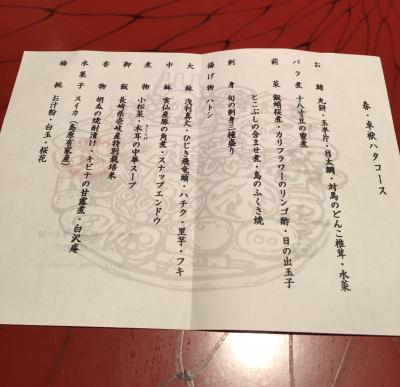 春・卓袱ハタコース
お鰭 丸餅・玉半片・目太鯛・対馬のどんこ椎茸・水菜
バラ煮 十八寸豆の蜜煮
前菜 飯蛸桜煮・カリフラワーのリンゴ酢・日の出玉子
とこぶしの含ませ煮・鳥のふくさ焼
刺身 旬の刺身三種盛り
揚げ物 ハトシ
大鉢 浅利真丈・ひじき飛竜頭・ハチク・里芋・フキ
中鉢 雲仙産豚の角煮・スナップエンドウ
煮物 小松菜・木耳の中華スープ
御飯 長崎県壱岐産特別栽培米
香物 胡瓜の焼酎漬け・キビナの甘露煮・白沢庵
水菓子 スイカ(島原有家産)
梅椀 お汁粉・白玉・桜花